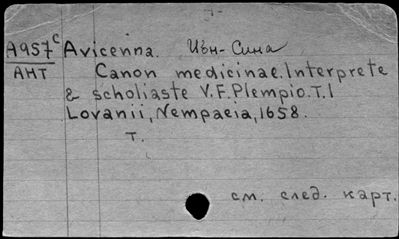 A957c Avicenna. Ибн-Сина
АНТ
Canon medicinae. Interprete
& scholiaste V. F. Plempio. T. I
Lovanii, Nempaeia, 1658.
T.
см. след. карт.